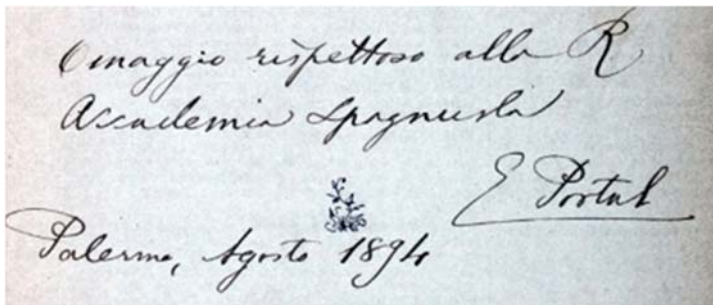 Omaggio rispettoso alla R
Accademia Spagnuola
E Portal
Palermo, Agosto 1894